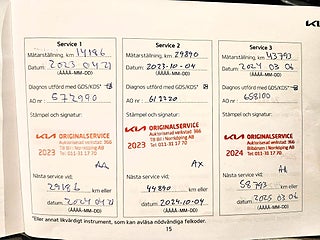 KIA
Service 1
Mätarställning, km 14186
Datum: 2023 04 21
(ÅÅÅÅ-MM-DD)
Diagnos utförd med GDS/KDS*
AO nr: 572990
Stämpel och signatur:
KIA ORIGINALSERVICE
Auktoriserad verkstad 366
Till Bil i Norrköping AB
2023 Tel: 011-31 17 70
AA
Nästa service vid:
29186 km eller
datum: 2024 04 21
(ÅÅÅÅ-MM-DD)
Service 2
Mätarställning, km 29890
Datum: 2023-10-04
(ÅÅÅÅ-MM-DD)
Diagnos utförd med GDS/KDS*
AO nr: 612220
Stämpel och signatur:
KIA ORIGINALSERVICE
Auktoriserad verkstad 366
2023 Tel: 011-31 17 70
AX
Nästa service vid:
44890 km eller
datum: 2024-10-04
(ÅÅÅÅ-MM-DD)
Service 3
Mätarställning, km 43793
Datum: 2024 03 06
(ÅÅÅÅ-MM-DD)
Diagnos utförd med GDS/KDS*
AO nr: 658100
Stämpel och signatur:
KIA ORIGINALSERVICE
Auktoriserad verkstad 366
2024 Tel: 011-31 17 70
Nästa service vid:
58793 km eller
datum: 2025 03 06
(ÅÅÅÅ-MM-DD)
*Eller annat likvärdigt instrument, som kan avläsa nödvändiga felkoder.
15